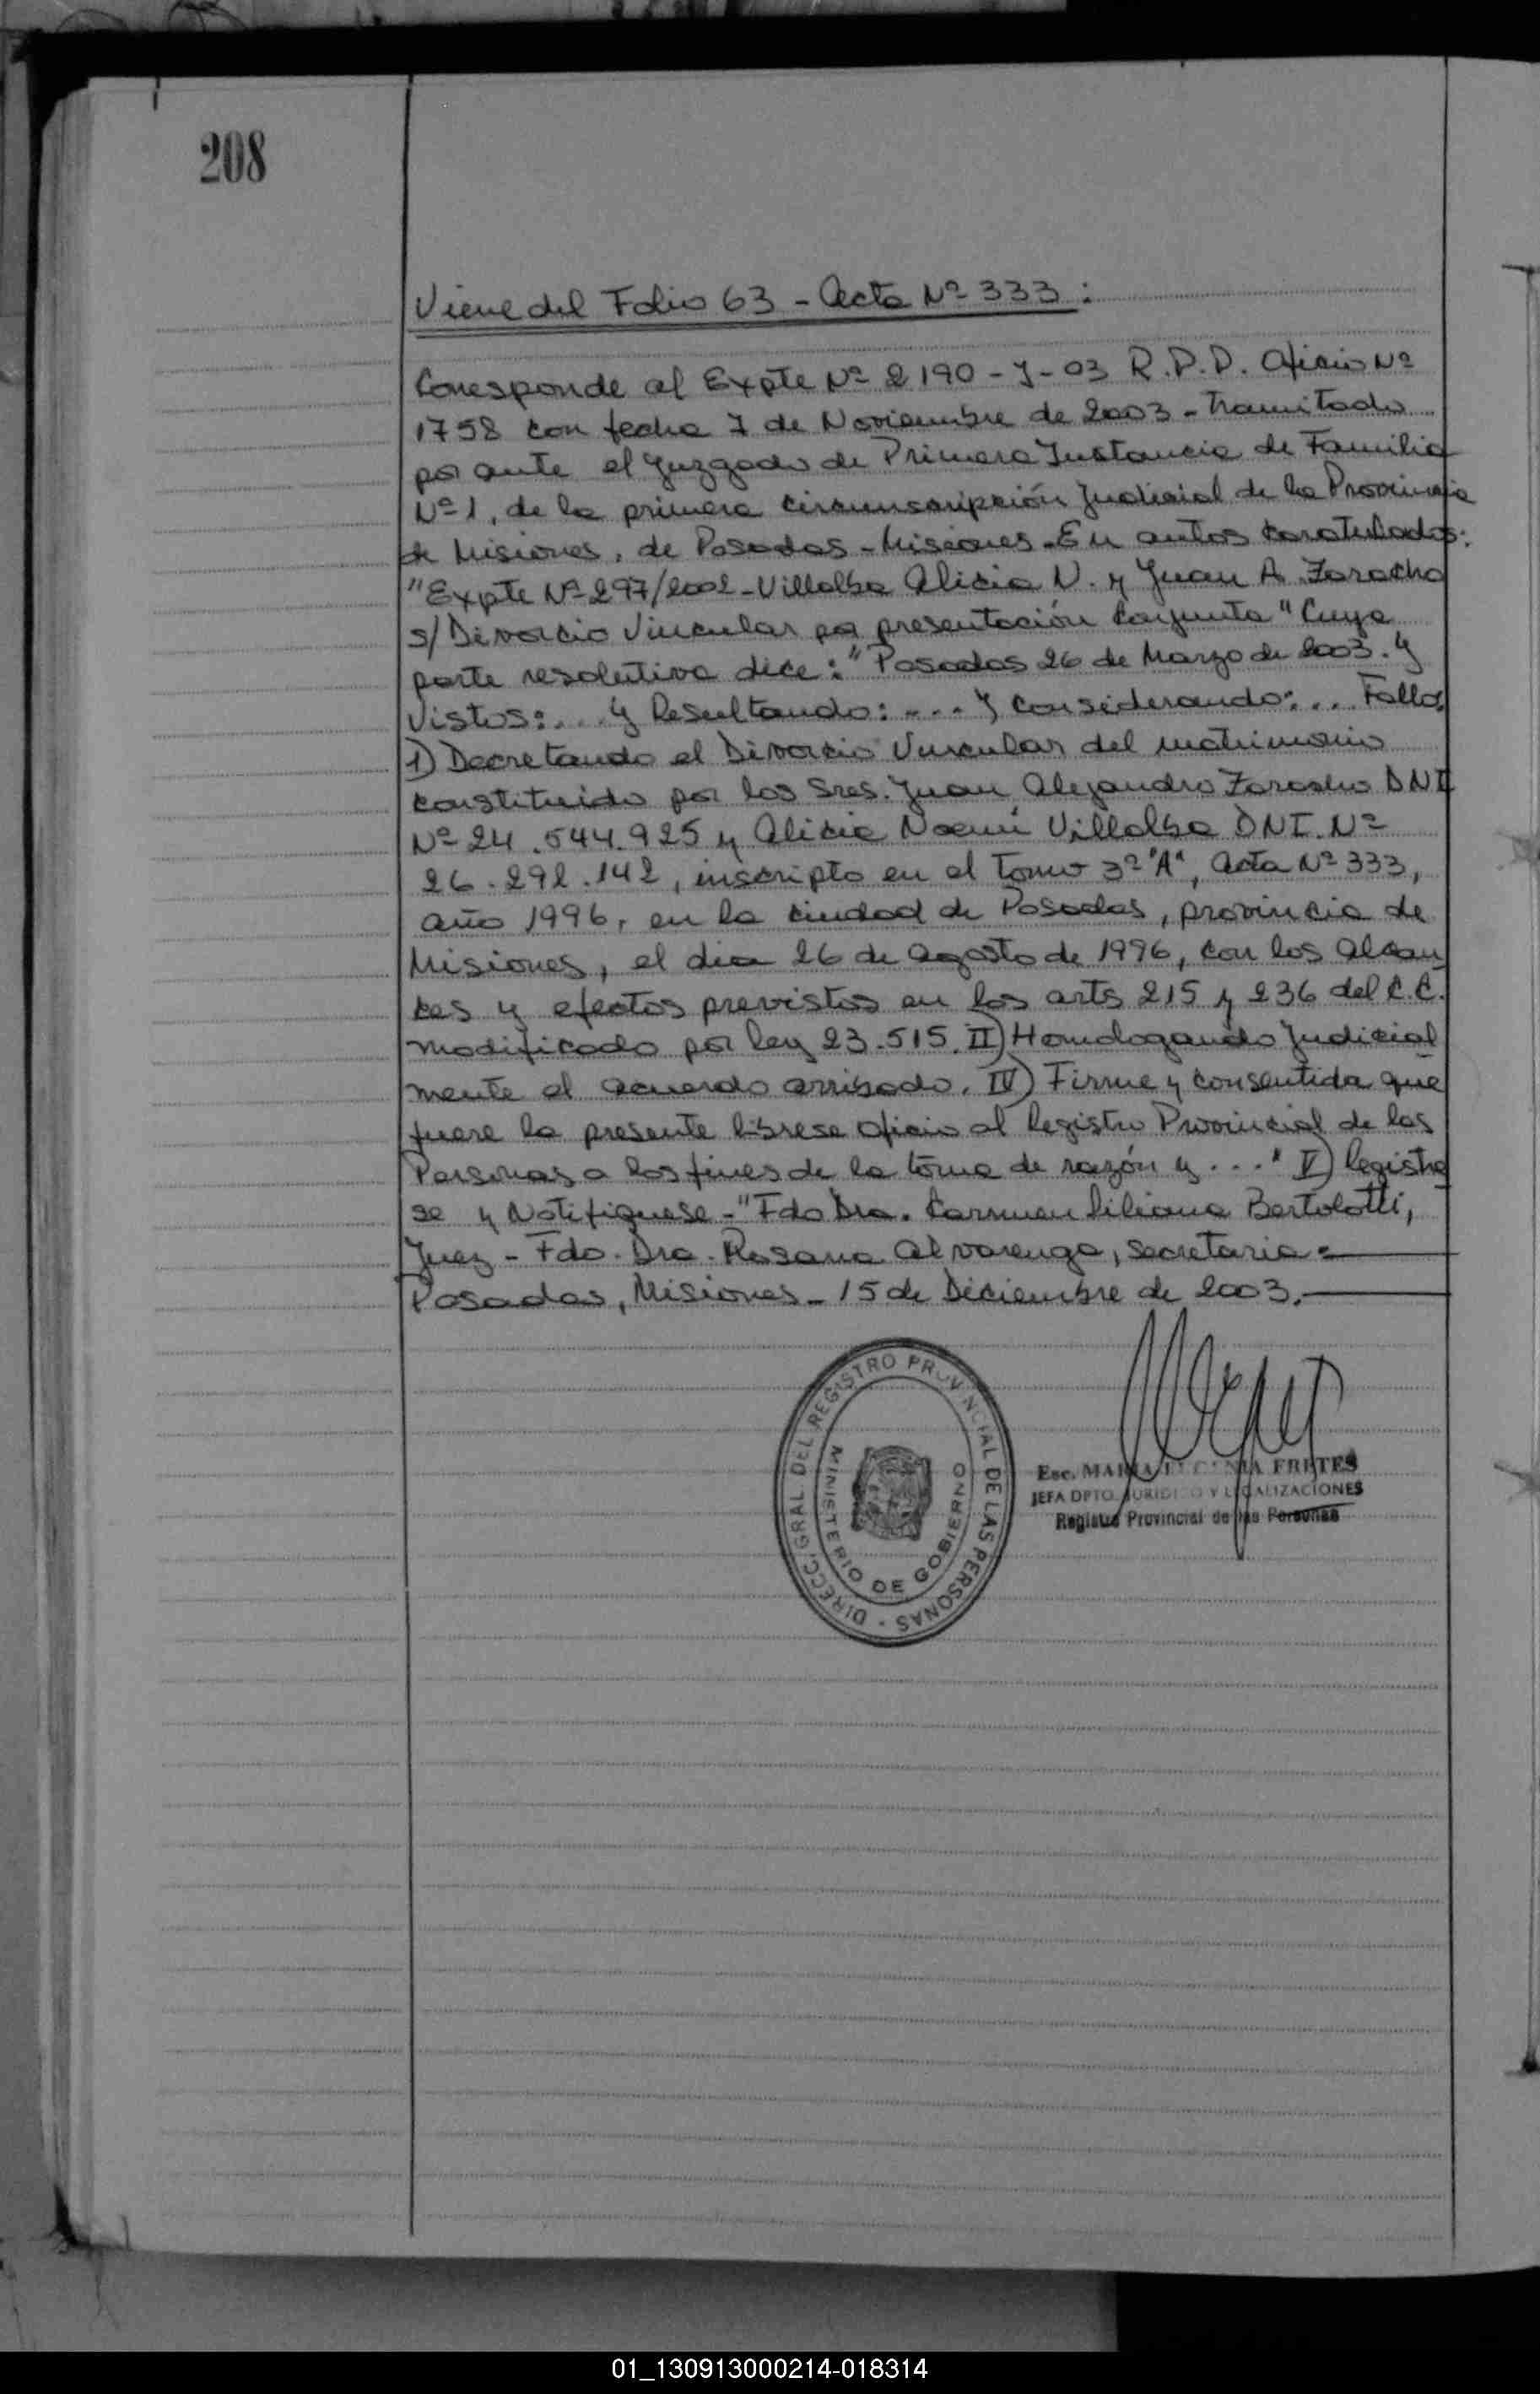 208
Viene del Folio 63 - Acta Nº 333:
Corresponde al Expte Nº 2190-J-03 R.P.P. Oficio Nº
1758 con fecha 7 de Noviembre de 2003 - Tramitado
por ante el Juzgado de Primera Instancia de Familia
Nº 1, de la primera circunscripción Judicial de la Provincia
de Misiones, de Posadas - Misiones - En autos caratulados:
"Expte Nº 297/2002 - Villalba Alicia N. y Juan A. Zaracho
s/ Divorcio Vincular por presentación Conjunta" Cuya
parte resolutiva dice: "Posadas 26 de Marzo de 2003. Y
Vistos: ... Y Resultando: ... Y considerando: ... Fallo:
1) Decretando el Divorcio Vincular del matrimonio
constituido por los Sres. Juan Alejandro Zaracho DNI
Nº 24.544.925 y Alicia Noemí Villalba DNI. Nº
26.292.142, inscripto en el Tomo 3º "A", Acta Nº 333,
año 1996, en la ciudad de Posadas, provincia de
Misiones, el día 26 de agosto de 1996, con los alcan
ces y efectos previstos en los arts 215 y 236 del C.C.
modificado por ley 23.515. II) Homologando Judicial
mente el acuerdo arribado. IV) Firme y consentida que
fuere la presente líbrese oficio al Registro Provincial de las
Personas a los fines de la toma de razón y ..." V) Registre
se y Notifíquese - "Fdo Dra. Carmen Liliana Bertolotti,
Juez - Fdo. Dra. Rosana Alvarenga, secretaria =
Posadas, Misiones - 15 de Diciembre de 2003.
DIRECC. GRAL. DEL REGISTRO PROVINCIAL DE LAS PERSONAS
MINISTERIO DE GOBIERNO
Esc. MARIA EUGENIA FRETES
JEFA DPTO. JURIDICO Y LEGALIZACIONES
Registro Provincial de las Personas
01_130913000214-018314